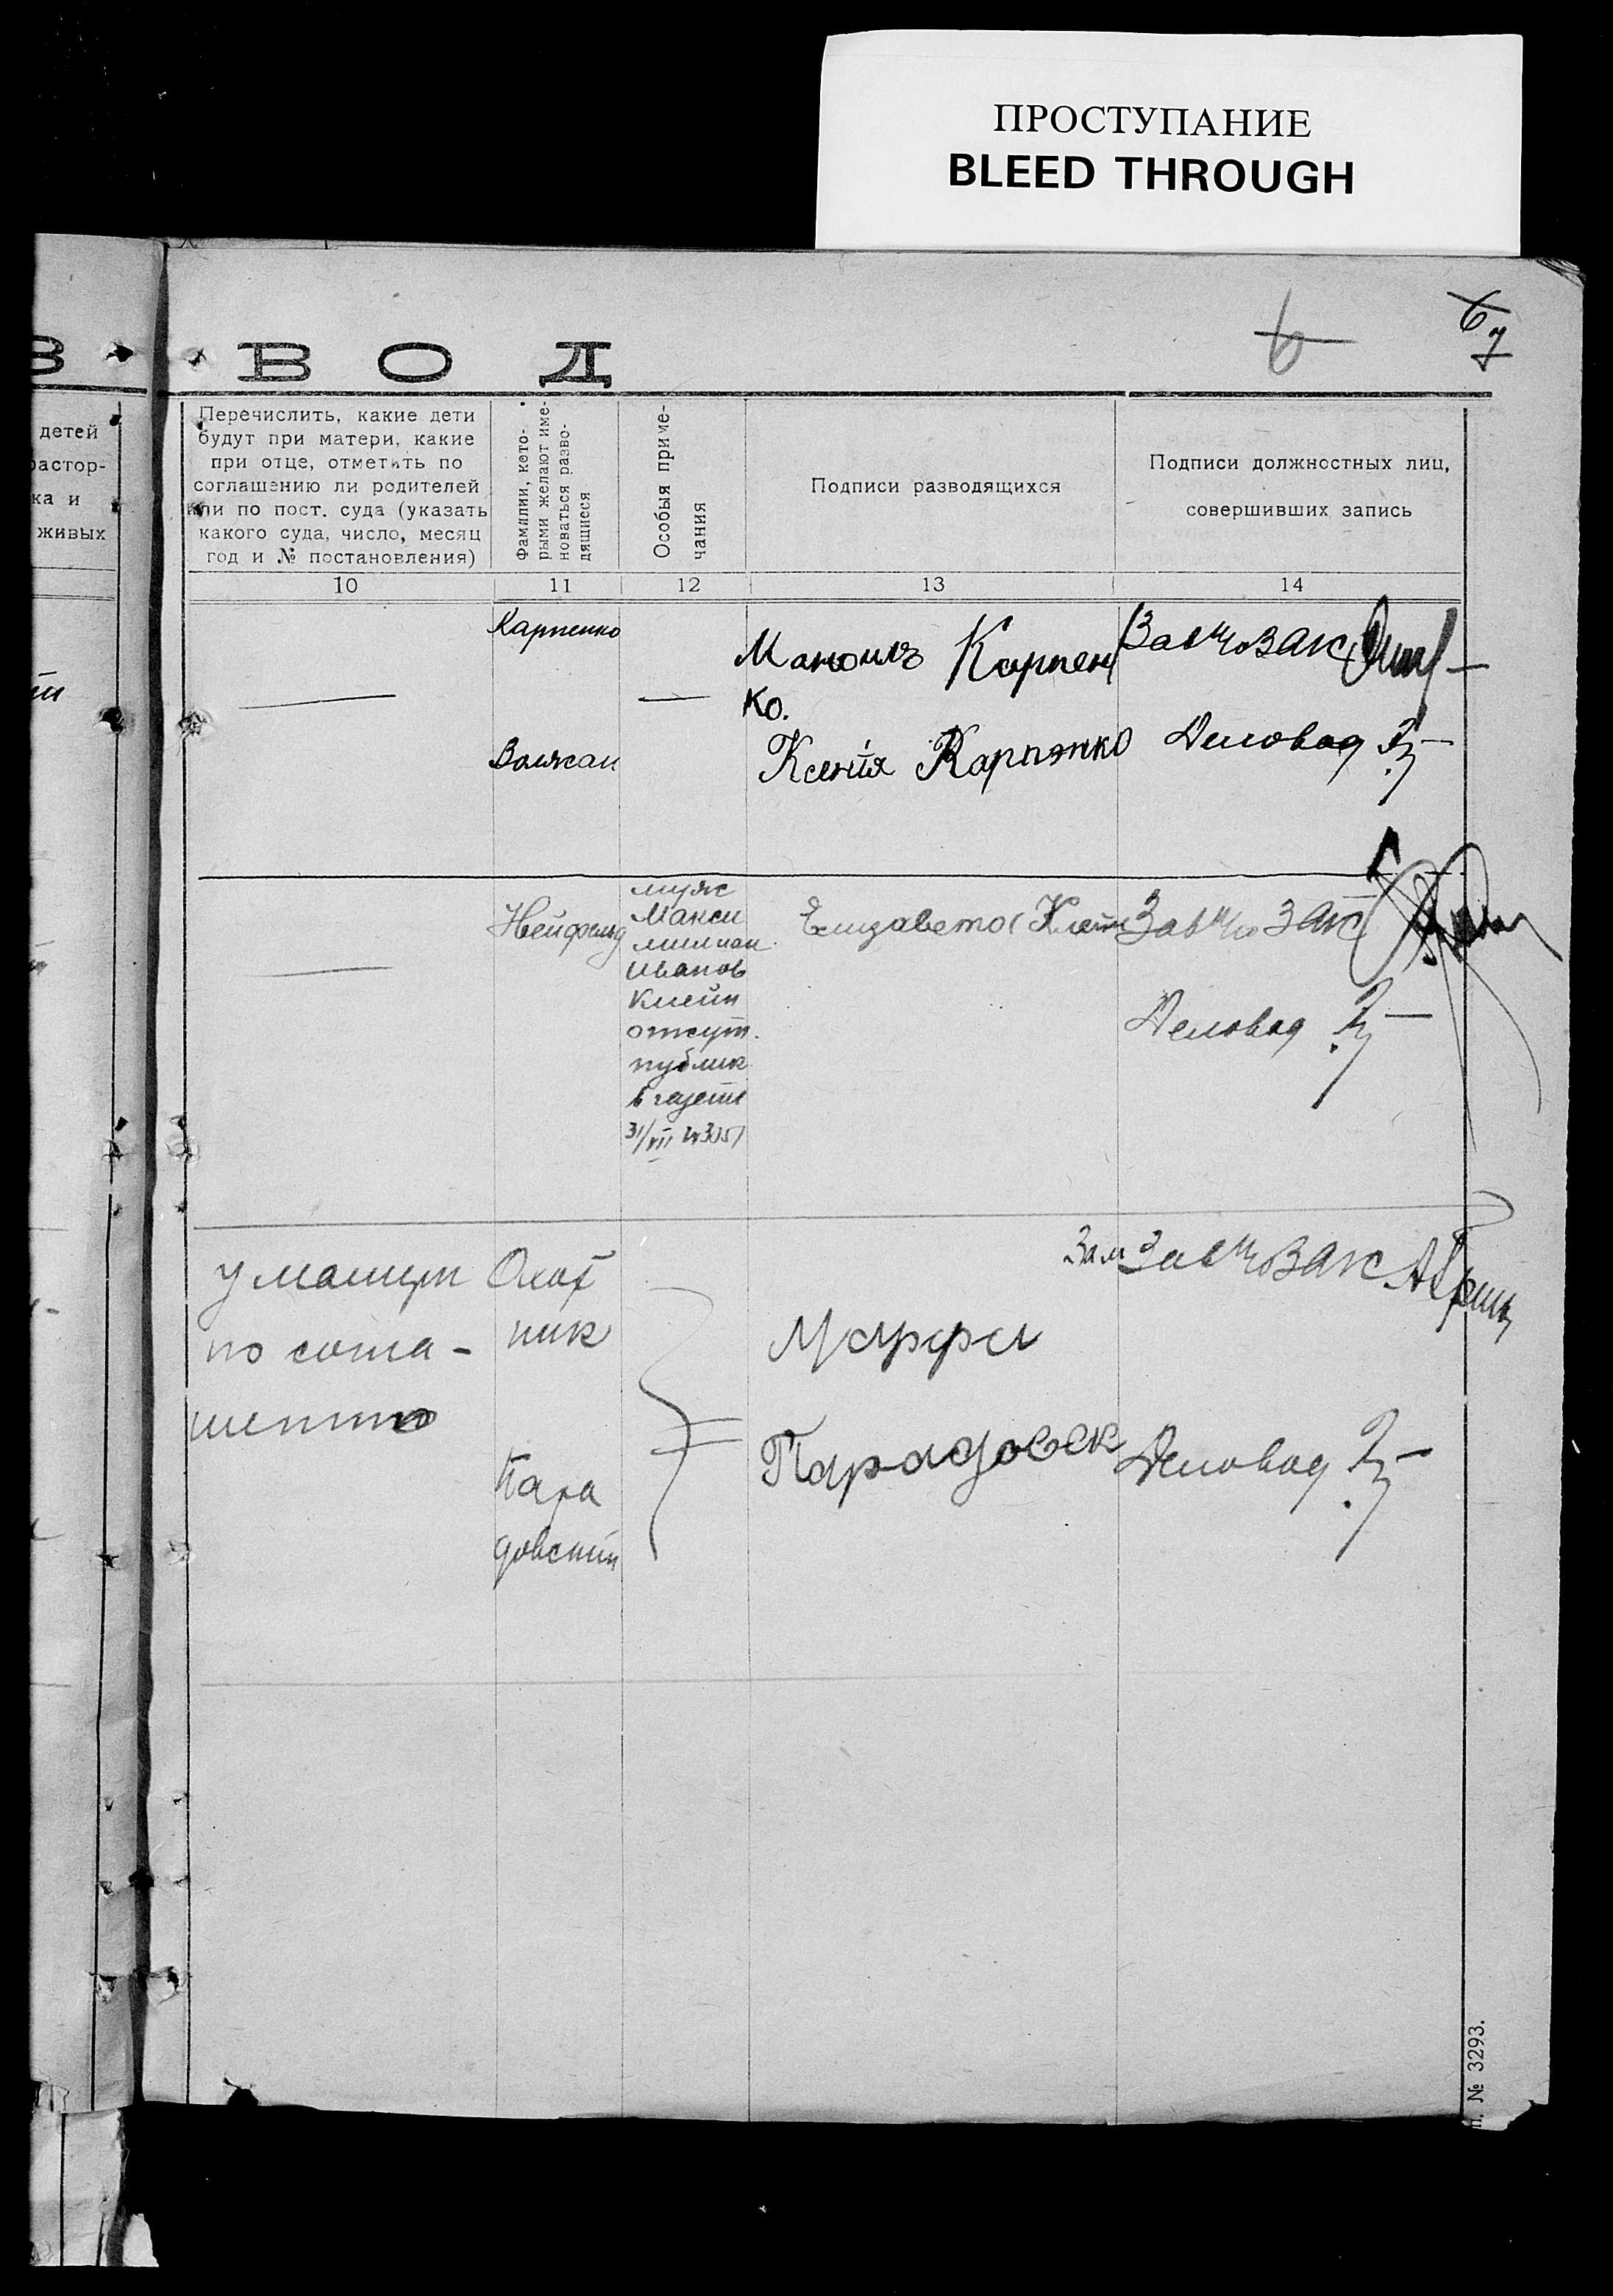 ПРОСТУПАНИЕ
BLEED THROUGH
6
6
7
В О Д
детей
растор-
ка и
живых
Перечислить, какие дети
будут при матери, какие
при отце, отметить по
соглашению ли родителей
или по пост. суда (указать
какого суда, число, месяц
год и № постановления)
Фамилии, кото-
рыми желают име-
новаться разво-
дящиеся
Особыя приме-
чания
Подписи разводящихся
Подписи должностных лиц,
совершивших запись
10 11 12 13 14
Карпенко
Карпен
ко.
Ксенія Карпэнко
Деловод
Нейфельд
муж
Макси
милиан
Иванов
Клейн
отсут.
публик
в газете
31/VII
Елизавета Клейн
Деловод
у матери
по согла-
шению
Охот
ник
Пара
довский
Марфа
Парадовск
Зам
Деловод
№ 3293.